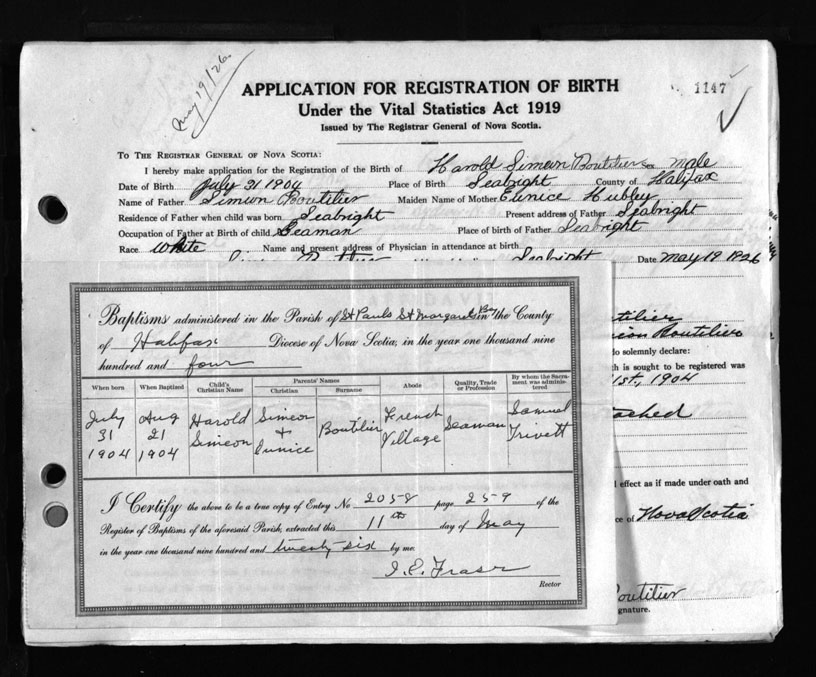 May 19/26.
1147
APPLICATION FOR REGISTRATION OF BIRTH
Under the Vital Statistics Act 1919
Issued by The Registrar General of Nova Scotia.
TO THE REGISTRAR GENERAL OF NOVA SCOTIA:
I hereby make application for the Registration of the Birth of Harold Simeon Boutilier Sex male
Date of Birth July 21 1904 Place of Birth Seabright County of Halifax
Name of Father Simeon Boutilier Maiden Name of Mother Eunice Hubley
Residence of Father when child was born Seabright Present address of Father Seabright
Occupation of Father at Birth of child Seaman Place of birth of Father Seabright
Race White Name and present address of Physician in attendance at birth
Boutilier Seabright Date May 19 1926
Baptisms administered in the Parish of St Pauls St Margarets Bay in the County
of Halifax Diocese of Nova Scotia, in the year one thousand nine
hundred and four
When born When Baptized Child's Christian Name Parents' Names Christian Surname Abode Quality, Trade or Profession By whom the Sacrament was administered
July 31 1904 Aug 21 1904 Harold Simeon Simeon + Eunice Boutilier French Village Seaman Samuel Trivett
I Certify the above to be a true copy of Entry No 2058 page 259 of the
Register of Baptisms of the aforesaid Parish, extracted this 11th day of May
in the year one thousand nine hundred and twenty-six by me.
I.E. Fraser
Rector
utilier
Boutilier
do solemnly declare:
h is sought to be registered was
1st, 1904
tached
l effect as if made under oath and
ce of Nova Scotia
outilier
gnature.